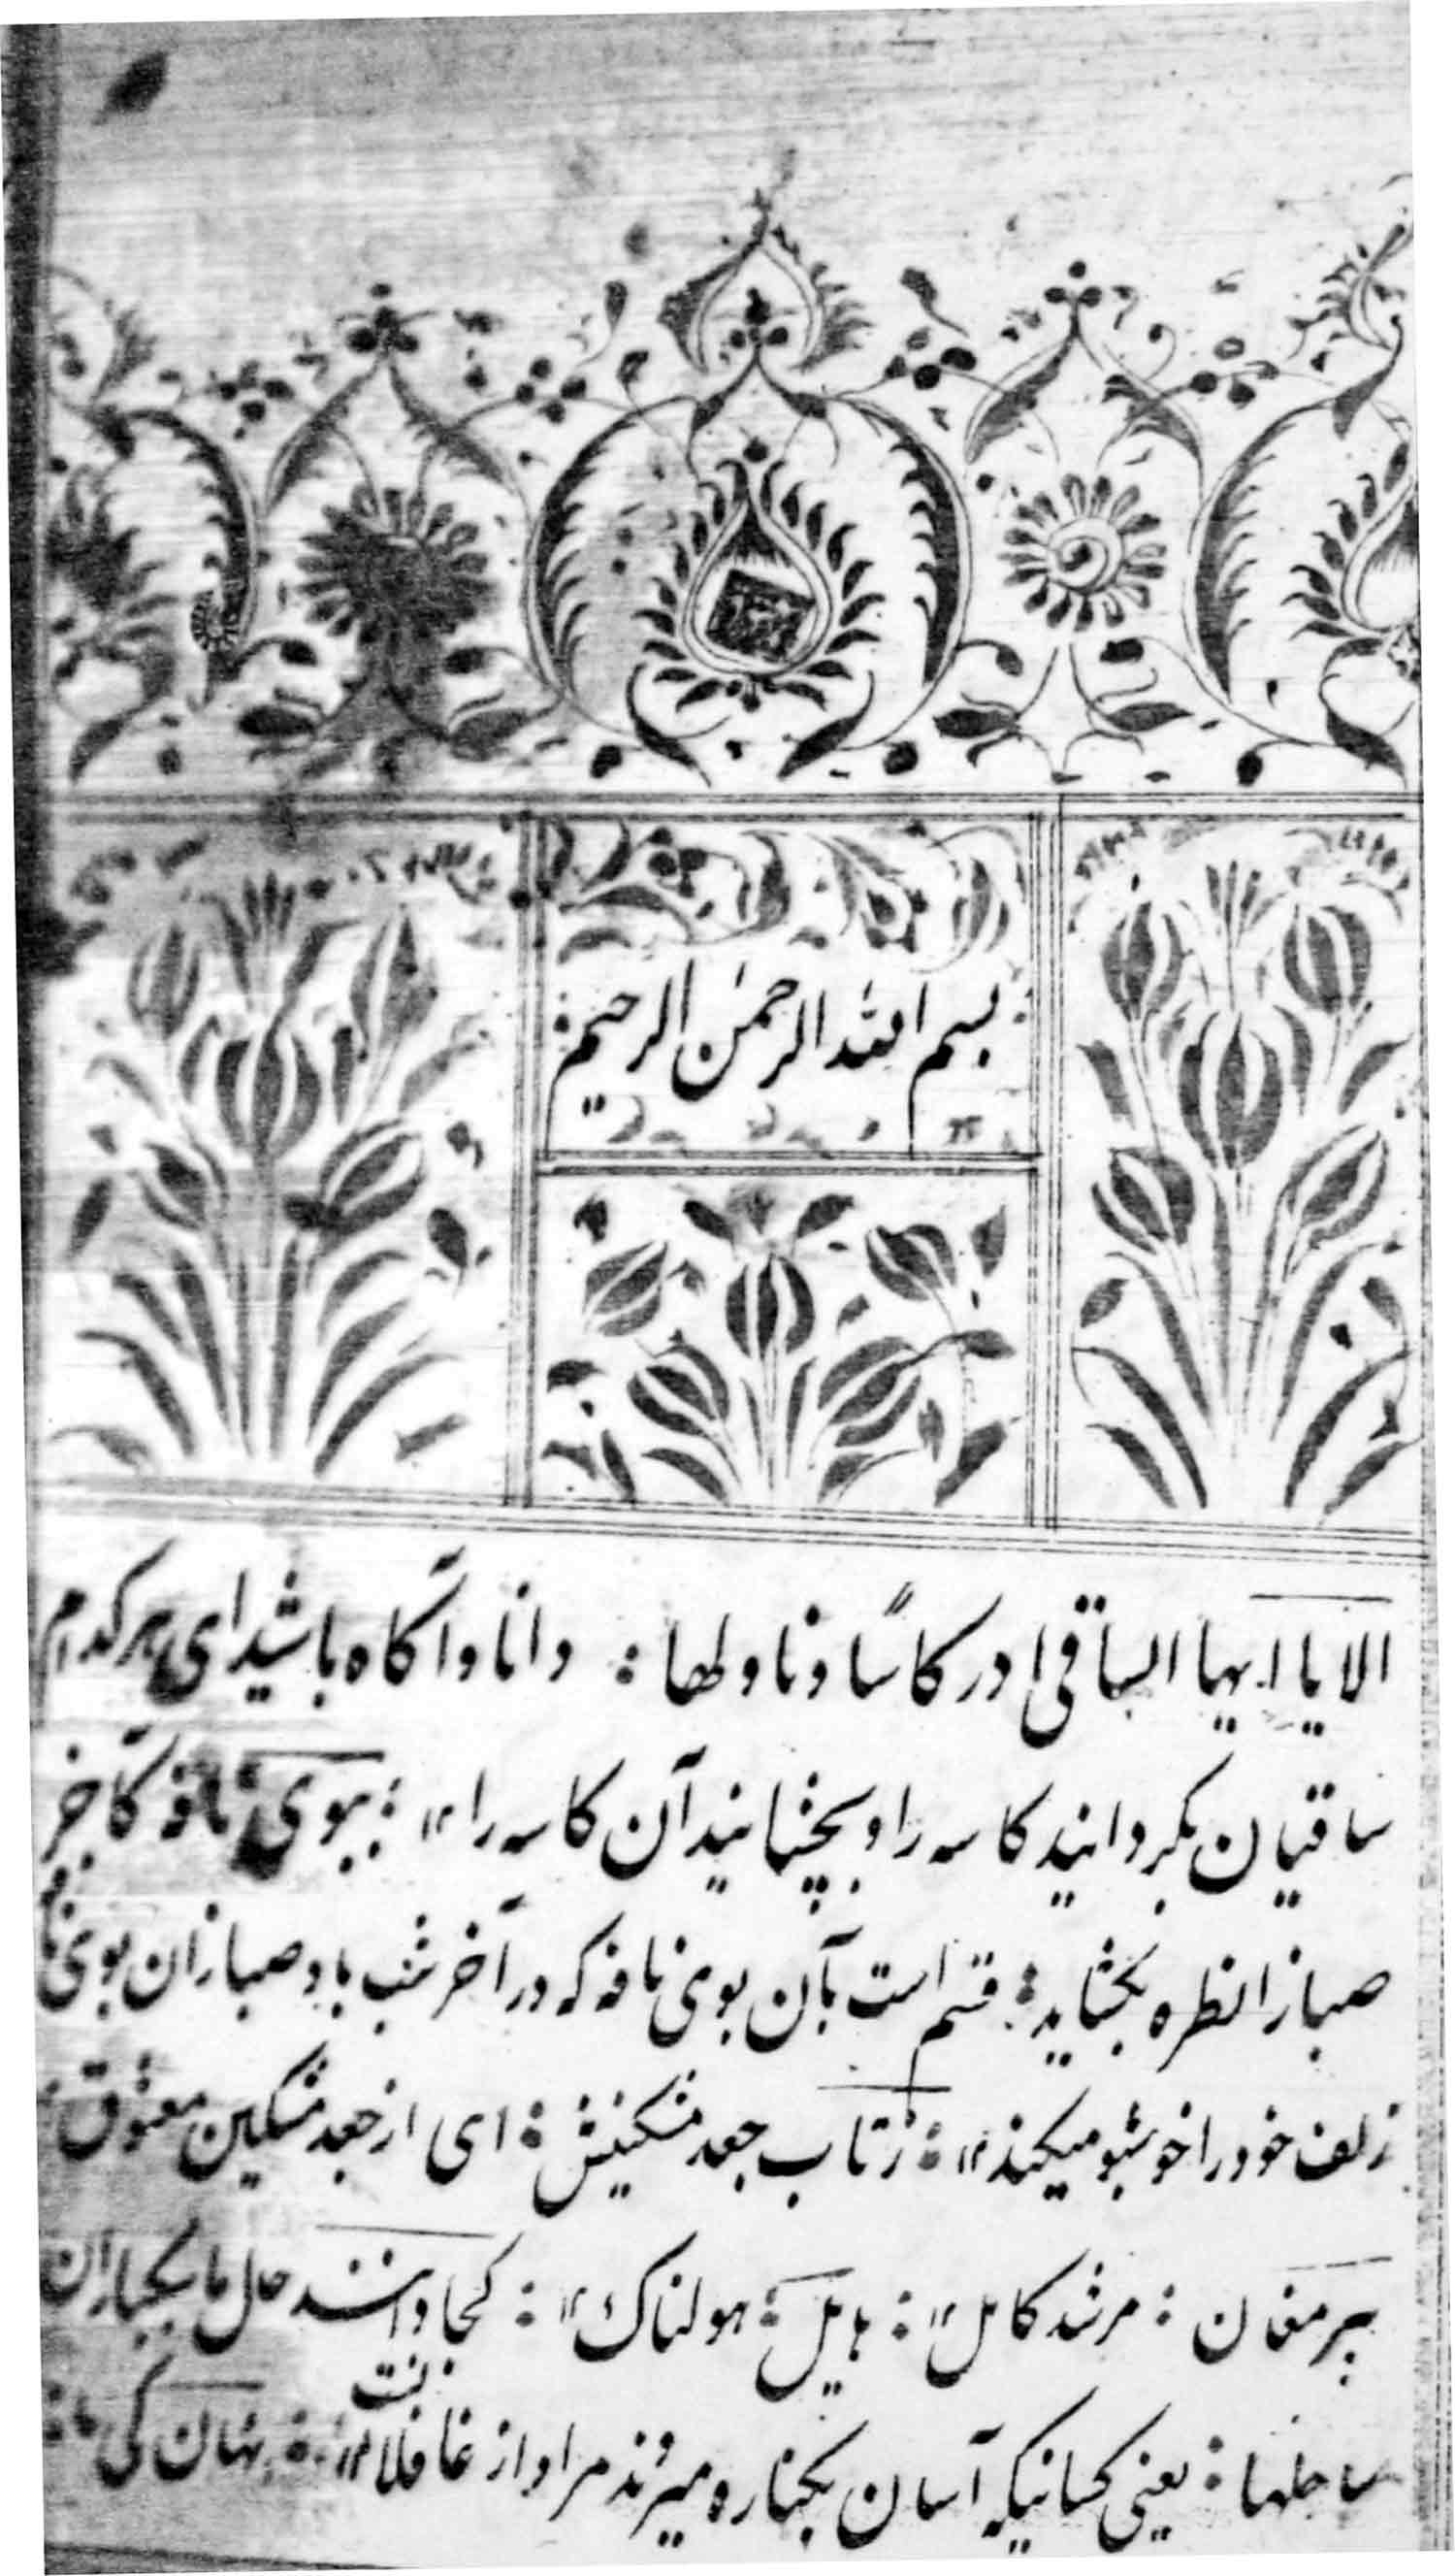 بسم الله الرحمن الرحیم
الا یا ایها الساقی ادر کاسًا و ناولها : دانا و آگاه باشید ای هر کدام
ساقیان بگردانید کاسه را و بچشانید آن کاسه را ۱۲ : ببوی نافه کآخر
صبا زان طره بکشاید : قسم است بآن بوی نافه که در آخر شب باد صبا زان بوی
زلف خود را خوشبو میکند ۱۲ : ز تاب جعد مشکینش : ای از جعد مشکین معشوق
پیر مغان : مرشد کامل ۱۲ : هایل : هولناک ۱۲ : کجا دانند حال ما سبکباران
ساحلها : یعنی کسانیکه آسان بکناره میروند مراد از غافلانست ۱۲ : نهان کی